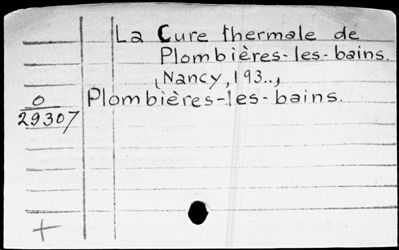 La Cure thermale de
Plombières-les-bains.
(Nancy, 193..,
O Plombières-les-bains.
29307
+